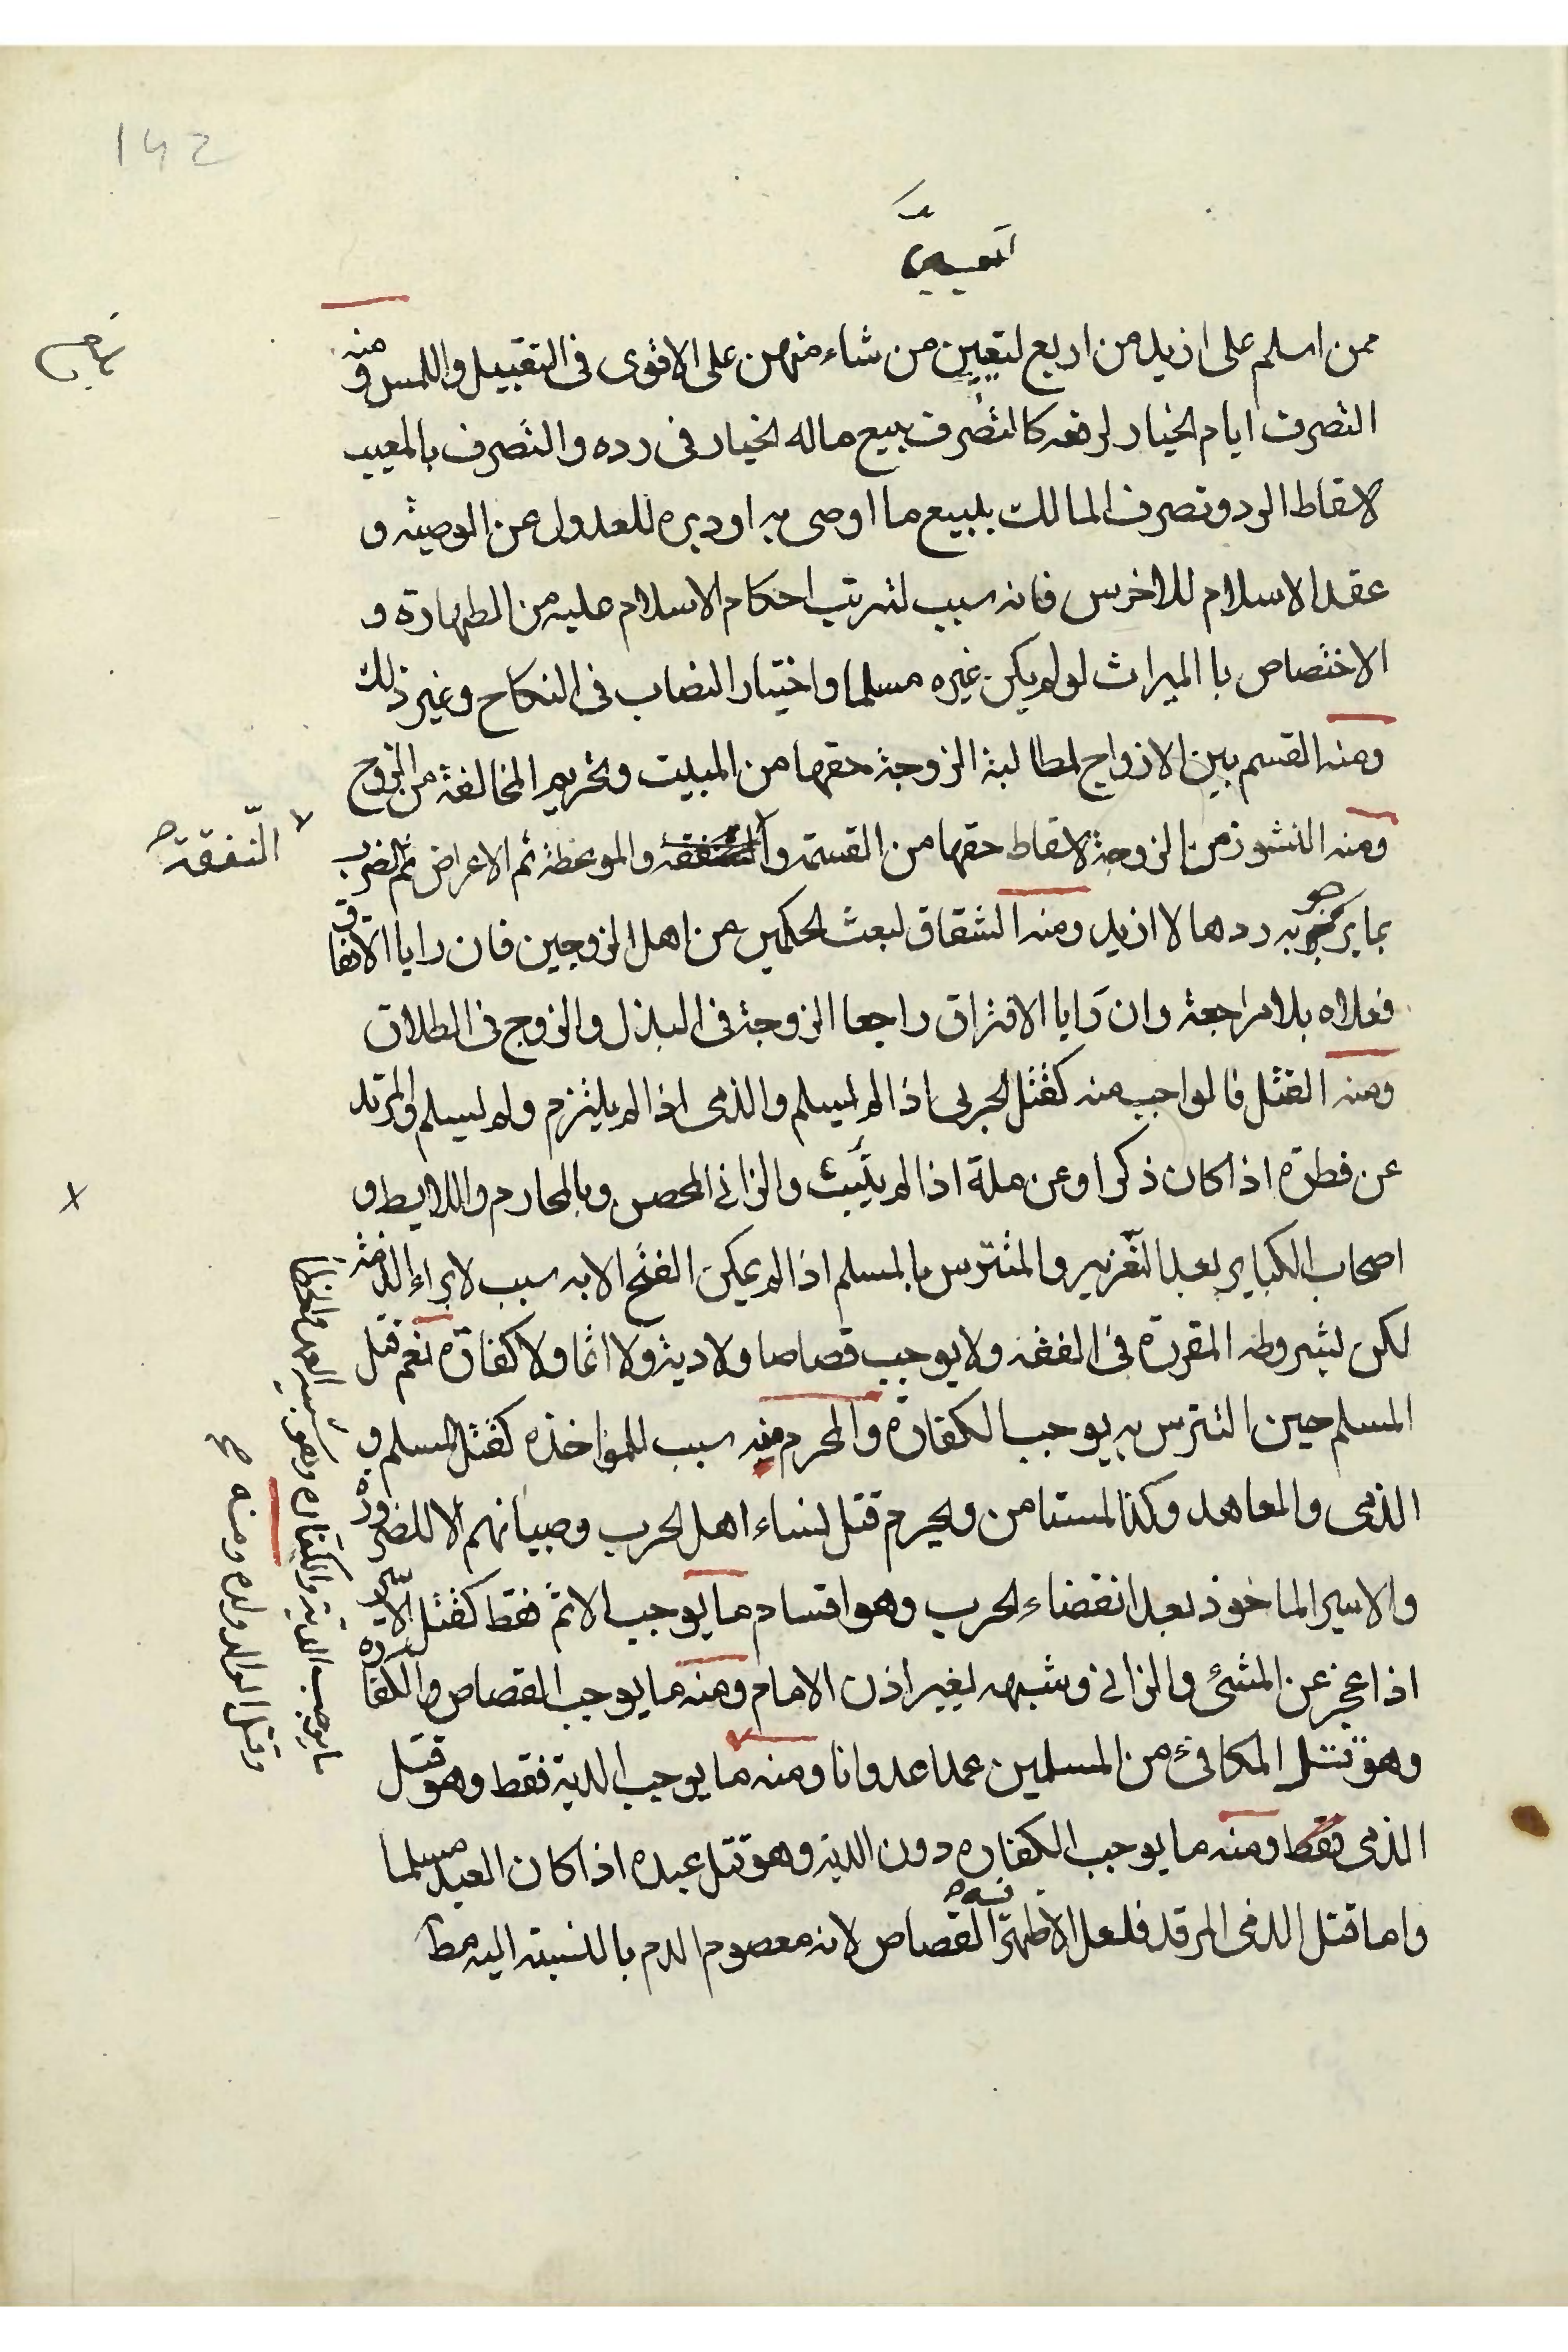 142
ممن اسلم على ازيد من اربع لتعيين من شاء منهن على الاقوى فى التقبيل واللمس ومنه
التصرف ايام الخيار لرفعه كالتصرف ببيع ماله الخيار فى رده والتصرف بالمعيب
لاسقاط الرد وتصرف المالك ببيع ما اوصى به او دبره للعدول عن الوصية و
عقد الاسلام للاخرس فانه سبب لترتب احكام الاسلام عليه من الطهارة و
الاختصاص با الميراث لو لم يكن غيره مسلما واختيار النصاب فى النكاح وغير ذلك
ومنه القسم بين الازواج لمطالبة الزوجة حقها من المبيت وتحريم المخالفة من الزوج
ومنه النشوز من الزوجة لاسقاط حقها من القسمة والنفقه والموعظة ثم الاعراض ثم الضرب
النّفقة صح
بما يرجو به ردها لا ازيد ومنه الشقاق لبعث الحكمين من اهل الزوجين فان رايا الاتفاق
فعلاه بلا مراجعة وان رَايا الافتراق راجعا الزوجة فى البذل والزوج فى الطلاق
ومنه القتل فالواجب منه كقتل الحربى اذا لم يسلم والذمى اذا لم يلتزم ولم يسلم والمرتد
عن فطرة اذا كان ذكرا وعن ملة اذا لم يتب والزانى المحصن وبالمحارم واللايط و
اصحاب الكباير بعد التّعزير والمتترس بالمسلم اذا لم يمكن الفتح الا به سبب لابراء الذمة
لكن بشروطه المقررة فى الفقه ولا يوجب قصاصا ولا دية ولا اثما ولا كفارة نعم قتل
المسلم حين التترس به يوجب الكفارة والمحرم منه سبب للمؤاخذه كقتل المسلم و
الذمى والمعاهد وكذا المستامن ويحرم قتل نساء اهل الحرب وصبيانهم الا للضرورة
والاسير الماخوذ بعد انقضاء الحرب وهو اقسام ما يوجب الاثم فقط كقتل الاسير
اذا عجز عن المشئ والزانى وشبهه بغير اذن الامام ومنه ما يوجب القصاص والكفارة
وهو قتل المكافئ من المسلمين عمدا عدوانا ومنه ما يوجب الدية فقط وهو قتل
الذمى فقط ومنه ما يوجب الكفاره دون الدية وهو قتل عبده اذا كان العبد مسلما
واما قتل الذمى المرتد فلعل الاظهر فيه القصاص لانه معصوم الدم بالنسبة اليه
ما يوجب الدية والكفاره وهو شبيه العمد والخطا
وقتل الوالد ولده ومنه